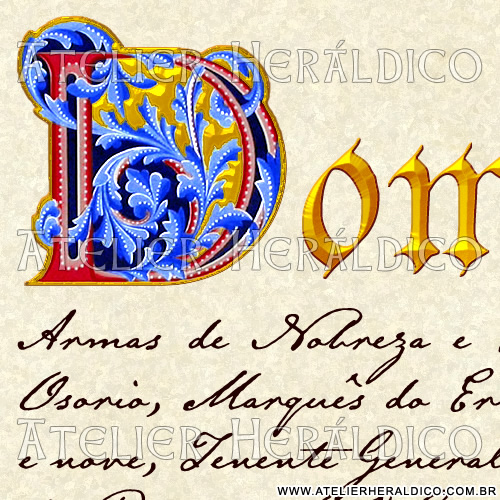 Atelier Heráldico
Dom
Atelier Heráldico
Armas de Nobreza e
Osorio, Marquês do Er
Atelier Heráldico
e nove, Tenente General
www.atelierheraldico.com.br